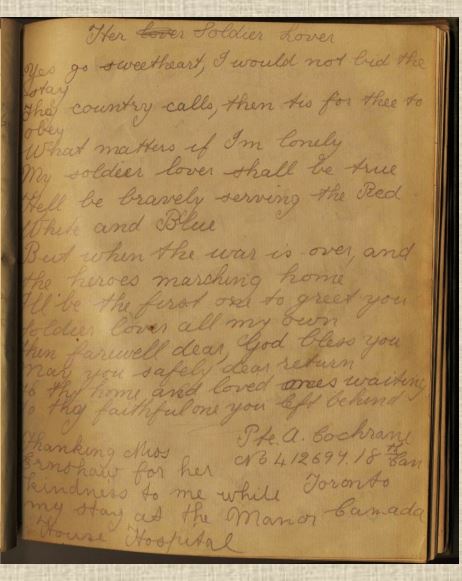 Her lover Soldier Lover
Yes go sweetheart, I would not bid the
stay
Tho' country calls, then tis for thee to
obey
What matters if I'm lonely
My soldier lover shall be true
He'll be bravely serving the Red
White and Blue
But when the war is over, and
the heroes marching home
I'll be the first one to greet you
Soldier lover all my own
Then farwell dear, God bless you
May you safely dear return
To thy home and loved ones waiting
To thy faithful one you left behind
Pte. A. Cochrane
No 412697. 18th Can
Toronto
Canada
Thanking Miss
Ernshaw for her
kindness to me while
my stay at the Manor
House Hospital